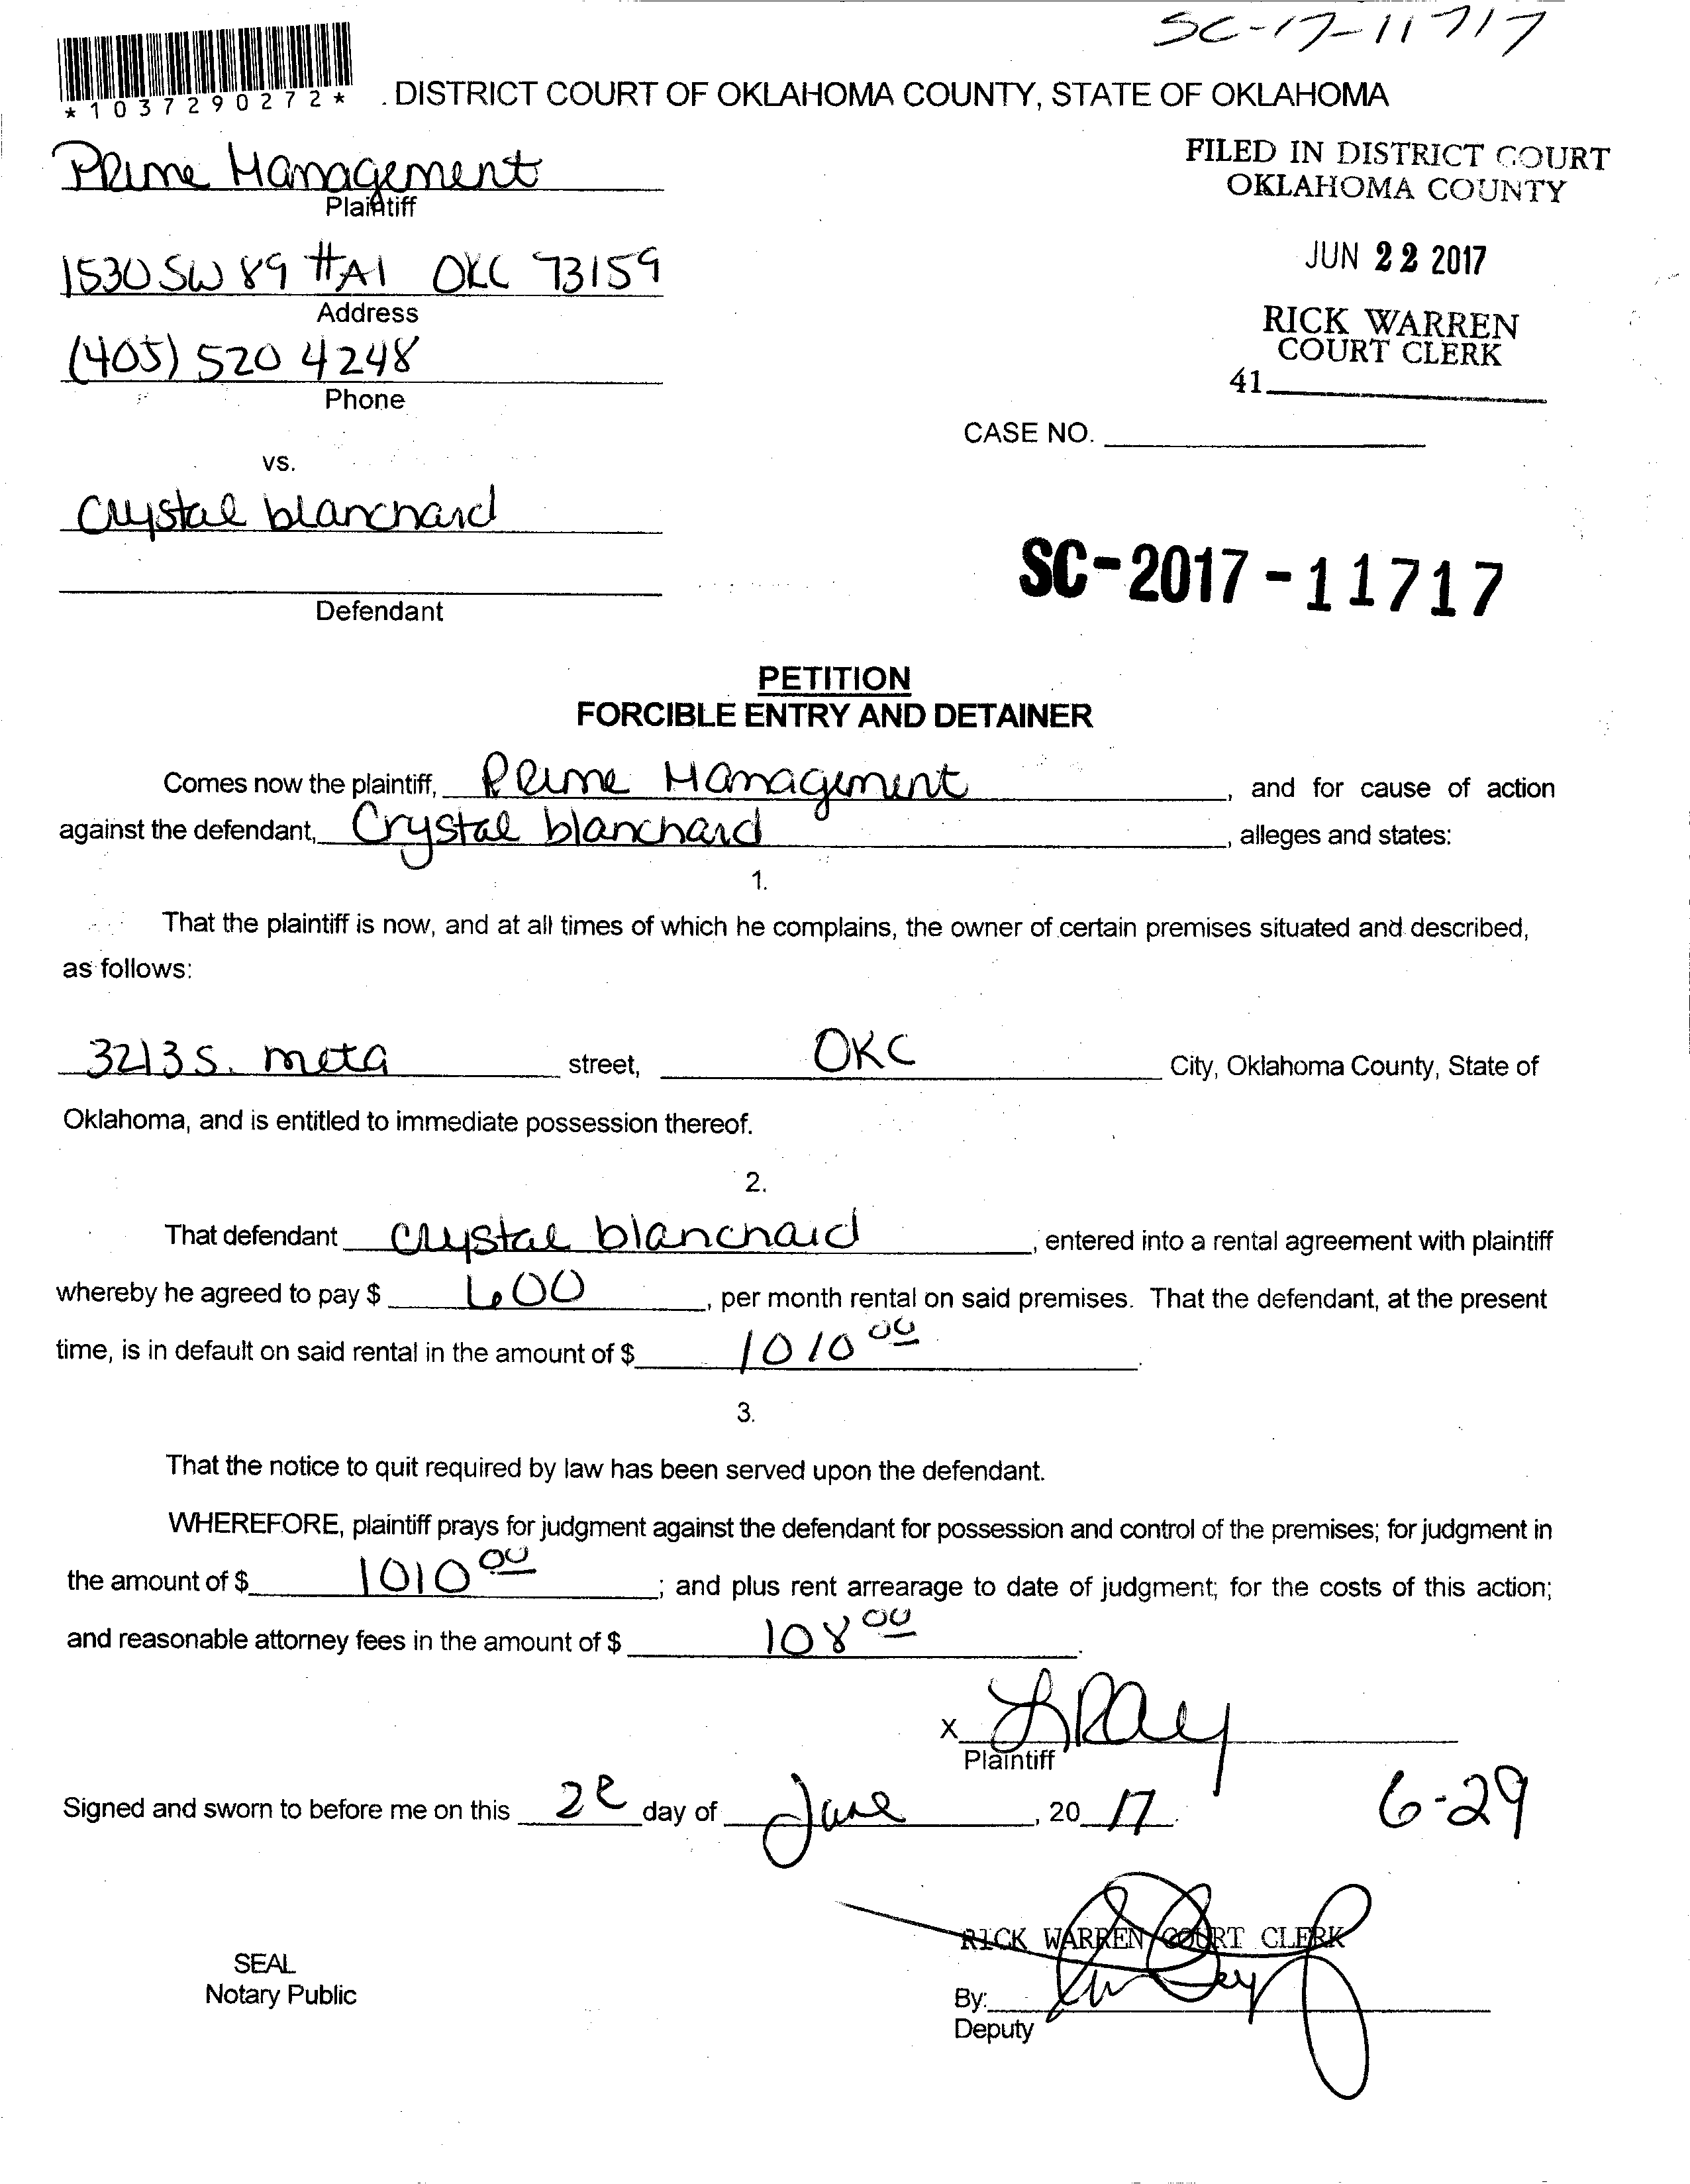 SC-17-11717
*1037290272*
. DISTRICT COURT OF OKLAHOMA COUNTY, STATE OF OKLAHOMA
Prime Management
Plaintiff
FILED IN DISTRICT COURT
OKLAHOMA COUNTY
JUN 22 2017
RICK WARREN
COURT CLERK
41
1530 SW 89 #A1 OKC 73159
Address
(405) 520 4248
Phone
CASE NO.
vs.
Crystal blanchard
Defendant
SC-2017-11717
PETITION
FORCIBLE ENTRY AND DETAINER
Comes now the plaintiff, Prime Management, and for cause of action
against the defendant, Crystal blanchard, alleges and states:
1.
That the plaintiff is now, and at all times of which he complains, the owner of certain premises situated and described,
as follows:
3213 S. meta street, OKC City, Oklahoma County, State of
Oklahoma, and is entitled to immediate possession thereof.
2.
That defendant Crystal blanchard, entered into a rental agreement with plaintiff
whereby he agreed to pay $ 600, per month rental on said premises. That the defendant, at the present
time, is in default on said rental in the amount of $ 1010 00.
3.
That the notice to quit required by law has been served upon the defendant.
WHEREFORE, plaintiff prays for judgment against the defendant for possession and control of the premises; for judgment in
the amount of $ 1010 00; and plus rent arrearage to date of judgment; for the costs of this action;
and reasonable attorney fees in the amount of $ 108 00.
x
Plaintiff
Signed and sworn to before me on this 22 day of June, 20 17.
6-29
RICK WARREN COURT CLERK
SEAL
Notary Public
By:
Deputy